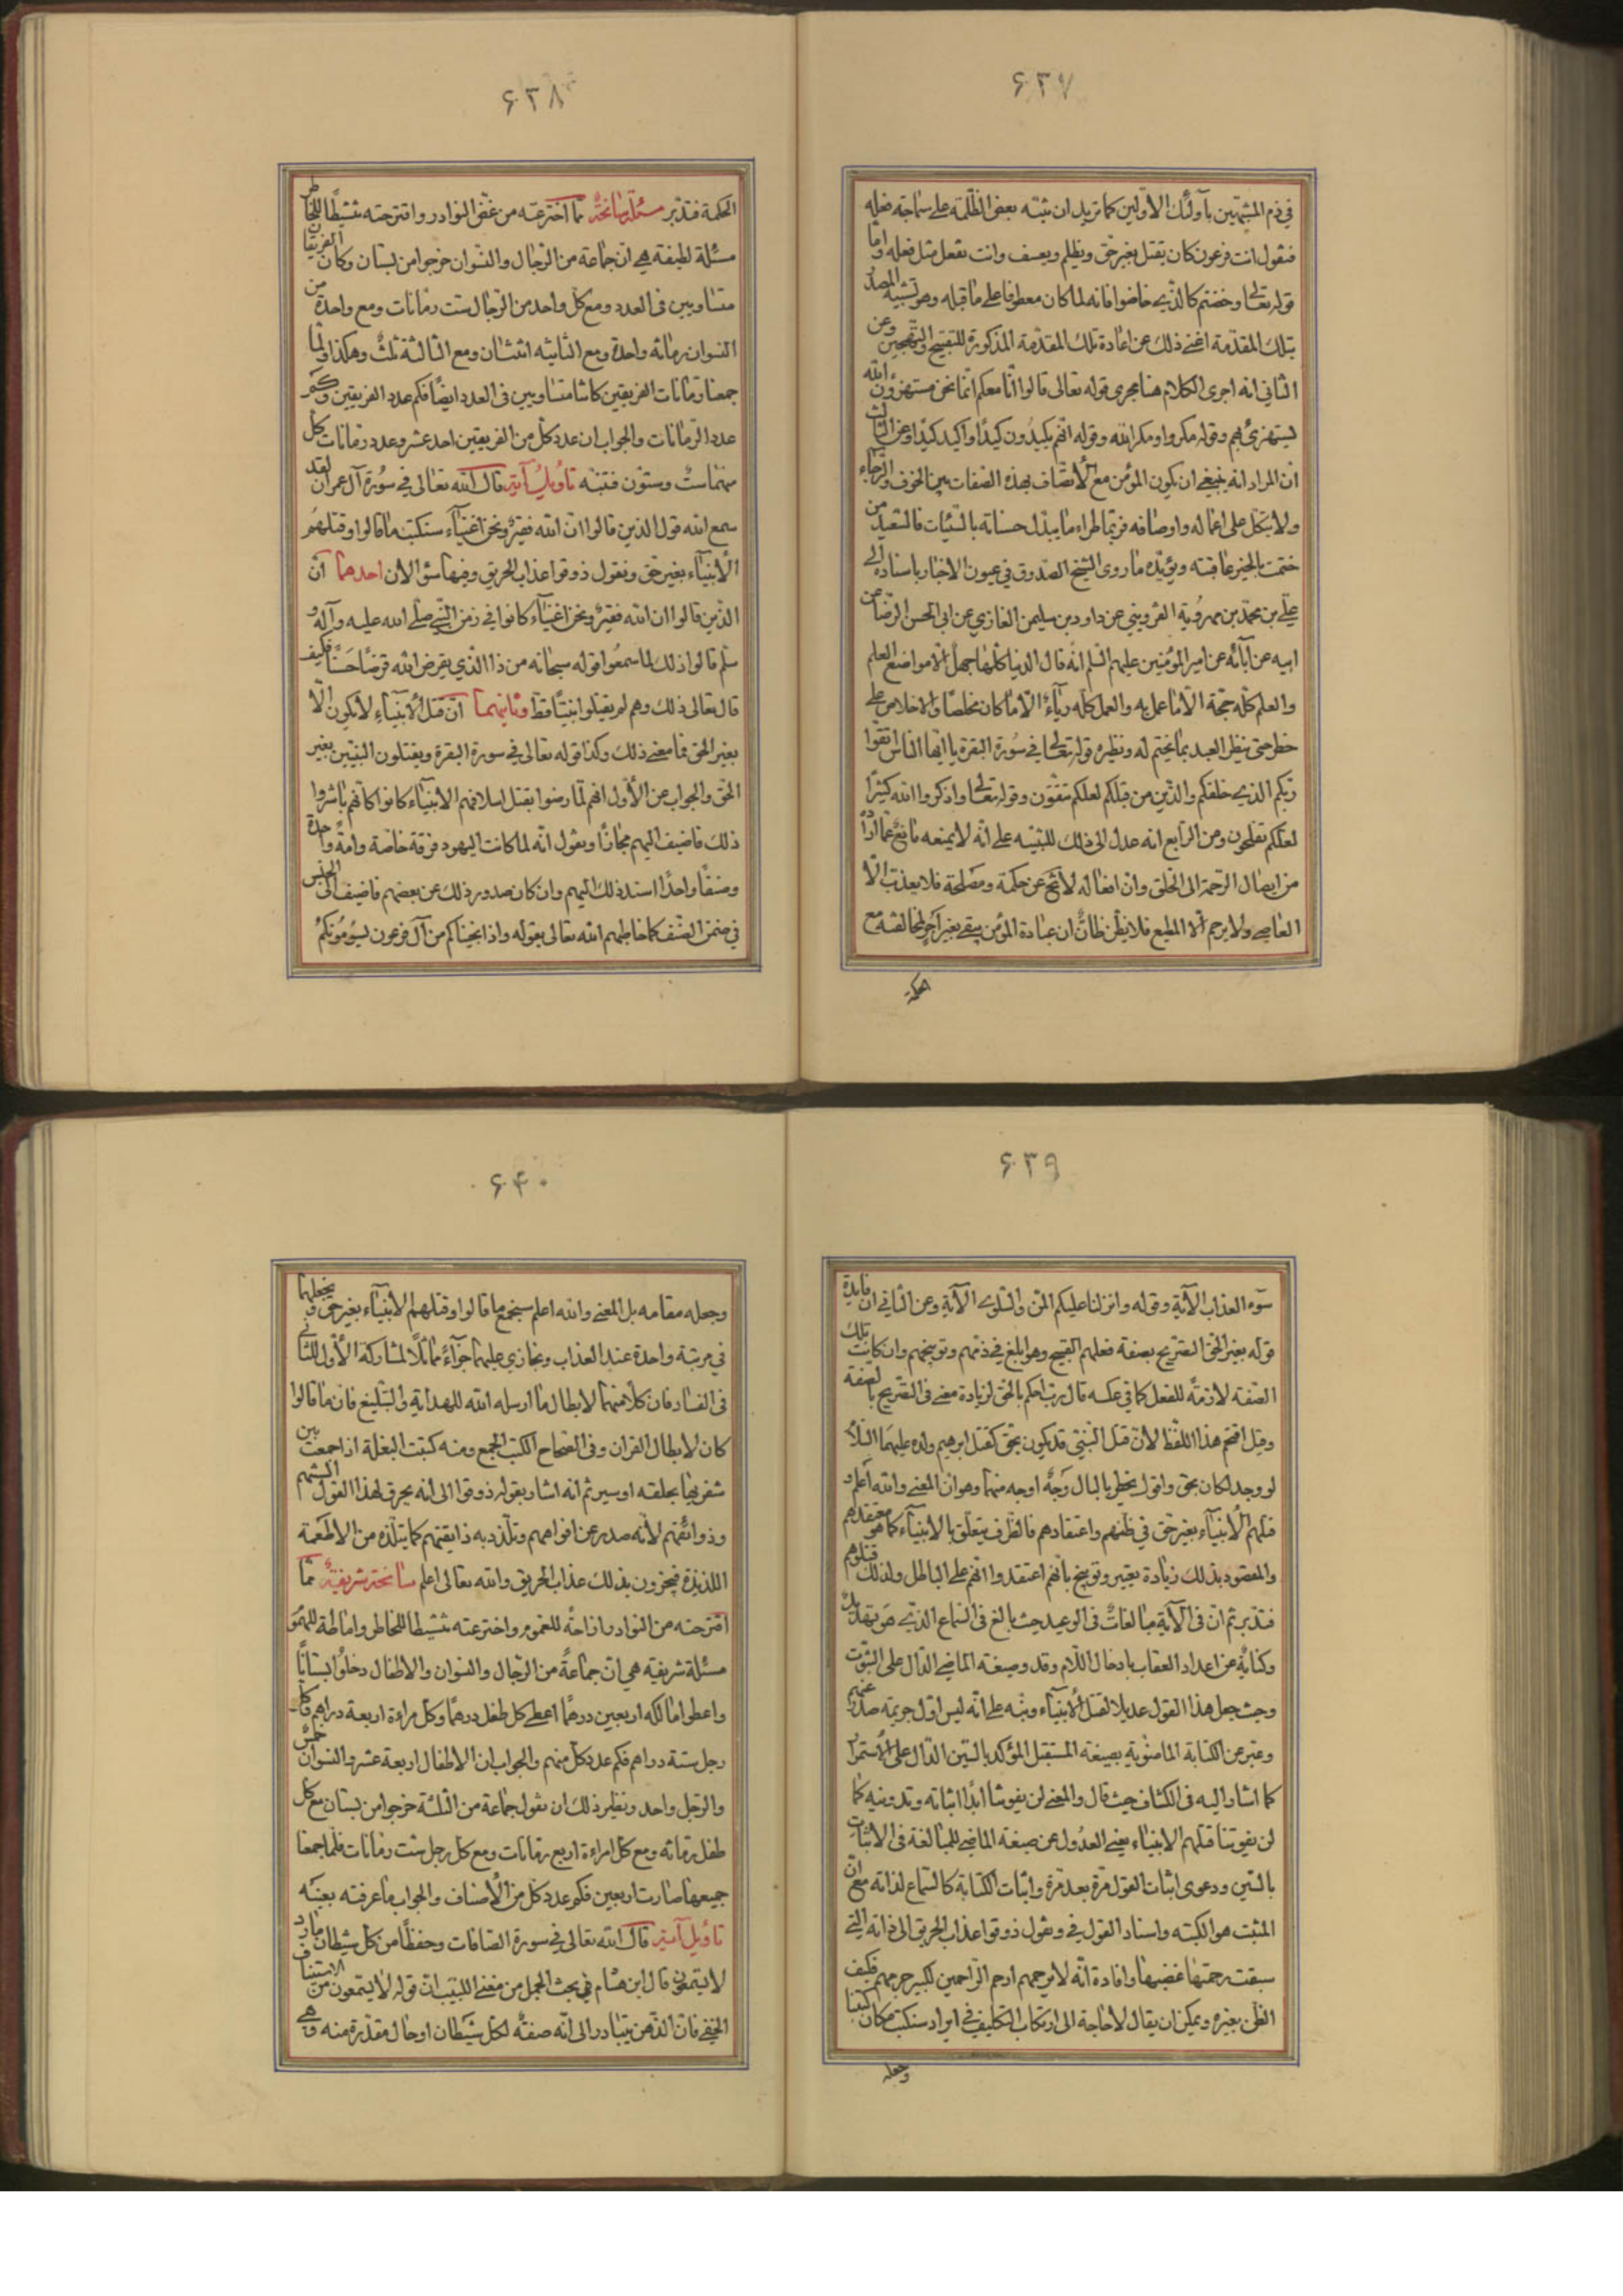 ۶۳۷
في ذم المشبهين بأولئك الاولين كما تريد ان تنبه بعض الظلمة على سماجة فعله
فتقول انت فرعون كان يقتل بغير حق ويظلم ويعسف وانت تفعل مثل فعله واما
قوله تعالى وخضتم كالذي خاضوا فانه لما كان معطوفا على ما قبله وهو تشبيه المصدر
بتلك المقدمة اغنى ذلك عن اعادة تلك المقدمة المذكورة للتقبيح والتهجين وعن
الثاني انه اجرى الكلام هنا مجرى قوله تعالى قالوا انا معكم انما نحن مستهزؤن الله
يستهزئ بهم وقوله مكروا ومكر الله وقوله انهم يكيدون كيدًا واكيد كيدًا وعن الثالث
ان المراد انه ينبغي ان يكون المؤمن مع الأتصاف بهذه الصفات بين الخوف والرجاء
ولا يتكل على اعماله واوصافه فربما طراء ما يبدل حسناته بالسيئات فالسعيد من
ختمت بالخير عاقبته ويؤيده ما روى الشيخ الصدوق في عيون الاخبار باسناده الى
علي بن محمد بن مهروية القزويني عن داود بن سليمن الغازي عن ابي الحسن الرضا عن
ابيه عن آبائه عن امير المؤمنين عليهم السلم انه قال الدنيا كلها جهل الا مواضع العلم
والعلم كله حجة الا ما عمل به والعمل كله رياء الا ما كان مخلصًا والاخلاص على
خطر حتى ينظر العبد بما يختم له ونظيره قوله تعالى في سورة البقرة يا ايها الناس اتقوا
ربكم الذي خلقكم والذين من قبلكم لعلكم تتقون وقوله تعالى واذكروا الله كثيرًا
لعلكم تفلحون ومن الرابع انه عدل الى ذلك للتنبيه على انه لا يمنعه مانع عما اراد
من ايصال الرحمة الى الخلق وان افعاله لا تخ عن حكمة ومصلحة فلا يعذب الا
العاصي ولا يرحم الا المطيع فلا يظن ظان ان عبادة المؤمن يبقى بغير اجر لمخالفته مع
الحكمة
۶۳۸
الحكمة فتدبر مسئلة سانحة مما اخترعته من غض النوادر واقترحته تنشيطًا للخاطر
مسئلة لطيفة هي ان جماعة من الرجال والنسوان خرجوا من بستان وكان الفريقان
متساويين في العدد ومع كل واحد من الرجال ست رمانات ومع واحدة من
النسوان رمانة واحدة ومع الثانيه اثنتان ومع الثالثة ثلث وهكذا ولما
جمعنا رمانات الفريقين كانتا متساويين في العدد ايضًا فكم عدد الفريقين وكم
عدد الرمانات والجواب ان عدد كل من الفريقين احد عشر وعدد رمانات كل
منهما ست وستون فتنبه تاويل آية قال الله تعالى في سورة آل عمران لقد
سمع الله قول الذين قالوا ان الله فقير ونحن اغنياء سنكتب ما قالوا وقتلهم
الأنبياء بغير حق ونقول ذوقوا عذاب الحريق وفيها سؤالان احدهما ان
الذين قالوا ان الله فقير ونحن اغنياء كانوا في زمن النبي صلى الله عليه وآله و
سلم قالوا ذلك لما سمعوا قوله سبحانه من ذا الذي يقرض الله قرضًا حسنًا فكيف
قال تعالى ذلك وهم لم يقتلوا نبيًا قط وثانيهما ان قتل الأنبياء لا يكون الا
بغير الحق فما معنى ذلك وكذا قوله تعالى في سورة البقرة ويقتلون النبيين بغير
الحق والجواب عن الأول انهم لما رضوا بقتل اسلافهم الانبياء كانوا كأنهم باشروا
ذلك فاضيف اليهم مجازًا ونقول انه لما كانت اليهود فرقة خاصة وامة واحدة
وصنفًا واحدًا اسند ذلك اليهم وان كان صدور ذلك عن بعضهم فاضيف الى الجنس
في ضمن الصنف كما خاطبهم الله تعالى بقوله واذ انجيناكم من آل فرعون يسومونكم
۶۳۹
سوء العذاب الآية وقوله وانزلنا عليكم المن والسلوى الآية وعن الثاني ان فايدة
قوله بغير الحق التصريح بصفة فعلهم القبيح وهو ابلغ في ذمهم وتوبيخهم وان كانت تلك
الصفة لازمة للفعل كما في عكسه قال رب احكم بالحق لزيادة معنى في التصريح بالصفة
وقيل اقحم هذا اللفظ لان قتل النبي قد يكون بحق كقتل ابرهيم ولده عليهما السلام
لو وجد لكان بحق واقول يخطر بالبال وجه اوجه منهما وهو ان المعنى والله اعلم و
قتلهم الأنبياء بغير حق في ظنهم واعتقادهم فالظرف يتعلق بالانبياء كما هو معتقدهم
والمقصود بذلك زيادة تعيير وتوبيخ بانهم اعتقدوا انهم على الباطل ولذلك قتلوهم
فتدبر ثم ان في الآية مبالغات في الوعيد حيث بالغ في السماع الذي هو تهديد
وكناية عن اعداد العقاب بادخال اللام وقد وصيغة الماضي الدال على الثبوت
وحيث جعل هذا القول عديلا لقتل الأنبياء ونبه على انه ليس اول جريمة صدر عنهم
وعبر عن الكتابة الماضوية بصيغة المستقبل المؤكد بالسين الدال على الأستمرار
كما اشار اليه في الكشاف حيث قال والمعنى لن يفوتنا ابدًا اثباته وتدوينه كما
لن يفوتنا قتلهم الانبياء يعني العدول عن صيغة الماضي للمبالغة في الاثبات
بالسين ودعوى اثبات القول مرة بعد مرة واثبات الكتابة كالسماع لذاته مع ان
المثبت هو الكتبه واسناد القول في ونقول ذوقوا عذاب الحريق الى ذاته التي
سبقت رحمتها غضبها وافادة انه لا يرحمهم ارحم الراحمين لكبير جرمهم فكيف
الظن بغيره ويمكن ان يقال لا حاجة الى ارتكاب التكليف في ايراد سنكتب مكان كتبنا
وجعله
۶۴۰
وجعله مقامه بل المعنى والله اعلم سنجمع ما قالوا وقتلهم الانبياء بغير حق ونجعلهما
في مرتبة واحدة عند العذاب ونجازي عليهما جزاءً مماثلًا لمشاركة الأول للثاني
في الفساد فان كلا منهما لابطال ما ارسله الله للهداية والتبليغ فان ما قالوا
كان لابطال القران وفي الصحاح الكتب الجمع ومنه كتبت البغلة اذا جمعت بين
شفريها بحلقه او سير ثم انه اشار بقوله ذوقوا الى انه يحرق لهذا القول السنتهم
وذوائقهم لأنه صدر عن افواههم وتلذذ به ذايقتهم كما يتلذذ من الاطعمة
اللذيذة فيجزون بذلك عذاب الحريق والله تعالى اعلم سانحة شريفة مما
اقترحته من النوادر ازاحة للغموم واخترعته تنشيطا للخاطر واماطة للهموم
مسئلة شريفة هي ان جماعة من الرجال والنسوان والاطفال دخلوا بستانًا
واعطوا مالكه اربعين درهمًا اعطى كل طفل درهمًا وكل مراءة اربعة دراهم وكل
رجل ستة دراهم فكم عدد كل منهم والجواب ان الاطفال اربعة عشر والنسوان خمس
والرجل واحد ونظير ذلك ان نقول جماعة من الثلثة خرجوا من بستان مع كل
طفل رمانة ومع كل امراءة اربع رمانات ومع كل رجل ست رمانات فلما جمعنا
جميعها صارت اربعين فكم عدد كل من الأصناف والجواب ما عرفته بعينه
تاويل آية قال الله تعالى في سورة الصافات وحفظًا من كل شيطان مارد
لا يسمعون قال ابن هشام في بحث الجمل من مغنى اللبيب ان قوله لا يسمعون من الاستيناف
الخفي فان الذهن يتبادر الى انه صفة لكل شيطان او حال مقدرة منه وهي